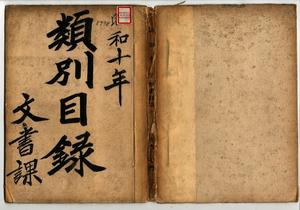 和十年
類別目録
文書課